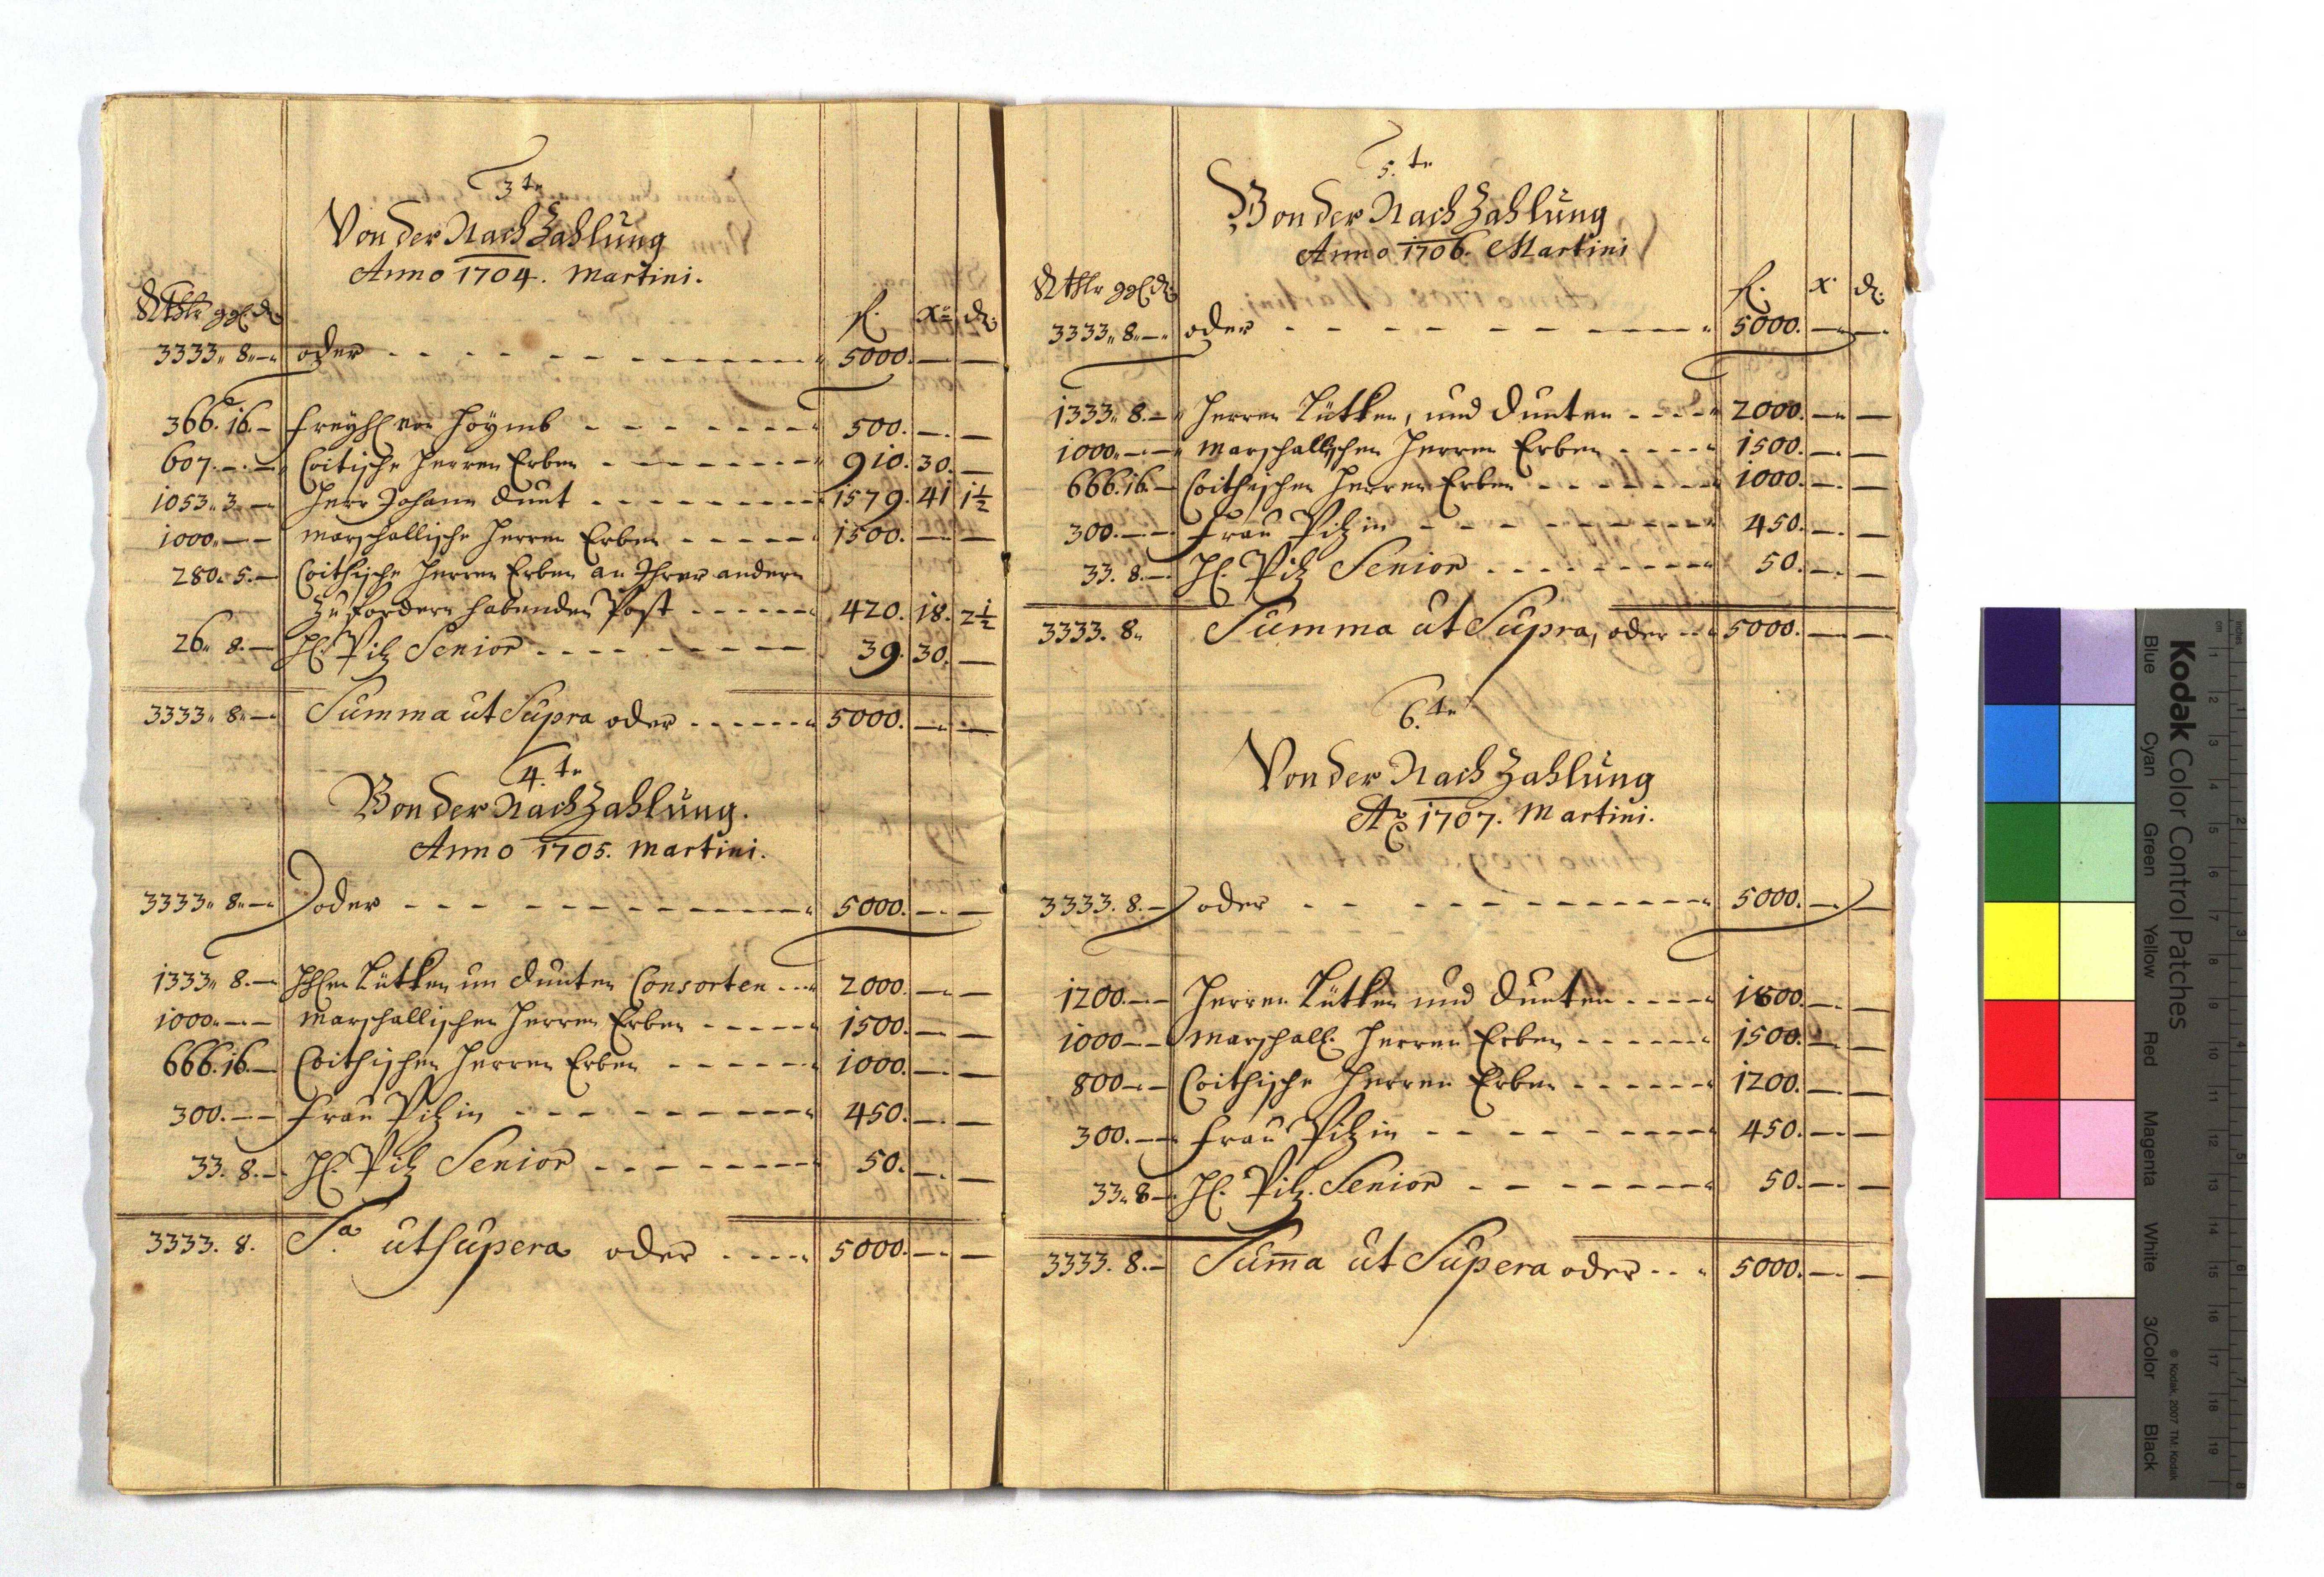 3te
Von der Nach Zahlung
Anno 1704. Martini.
Rthlr ggl. d. f. xr d.
3333„ 8„ — oder 5000. — —
366. 16. — Freyhl von Höymb 500. — —
607. — — Coitische Herren Erben 910. 30. —
1053„ 3„ — Herr Johann Dunt 1579. 41 1½
1000„ — — Marschallische Herren Erben 1500. — —
280„ 5. — Coithische Herren Erben an Ihrer andern
zu fordern habenden Post 420. 18. 2½
26„ 8. — Hl. Pilz Senior 39. 30. —
3333„ 8„ — Summa ut Supra oder 5000. — —
4.te
Von der Nach Zahlung.
Anno 1705. Martini.
3333„ 8„ — oder 5000. — —
1333„ 8. — HhEn Lütken un Dunten Consorten 2000. — —
1000„ — — Marschallischen Herren Erben 1500. — —
666. 16. — Coithischen Herren Erben 1000. — —
300. — — Frau Pilzin 450. — —
33. 8. — Hl. Pilz Senior 50. — —
3333. 8. Sa utsupera oder 5000. — —
5.te
Von der Nach Zahlung
Anno 1706. Martini
Rthlr ggl. d. f. x. d.
3333„ 8„ — oder 5000. — —
1333„ 8. — Herren Lütken, und Dunten 2000. — —
1000„ — — Marschallschen Herren Erben 1500. — —
666. 16. — Coithischen Herren Erben 1000. — —
300. — — Frau Pilzin 450. — —
33. 8. — Hl. Pilz Senior 50. — —
3333. 8„ Summa ut Supra, oder 5000. — —
6.te
Von der Nach Zahlung
Ao 1707. Martini.
3333. 8. — oder 5000. — —
1200. — — Herren Lütken und Dunten 1800. — —
1000 — — Marschall. Herren Erben 1500. — —
800 — — Coithische Herren Erben 1200. — —
300. — — Frau Pilzin 450. — —
33„ 8 — Hl. Pilz. Senior 50. — —
3333. 8. — Sum̄a ut Supera oder 5000. — —
Kodak Color Control Patches
© Kodak, 2007 TM: Kodak
Blue Cyan Green Yellow Red Magenta White 3/Color Black
inches 1 2 3 4 5 6 7 8
cm 1 2 3 4 5 6 7 8 9 10 11 12 13 14 15 16 17 18 19